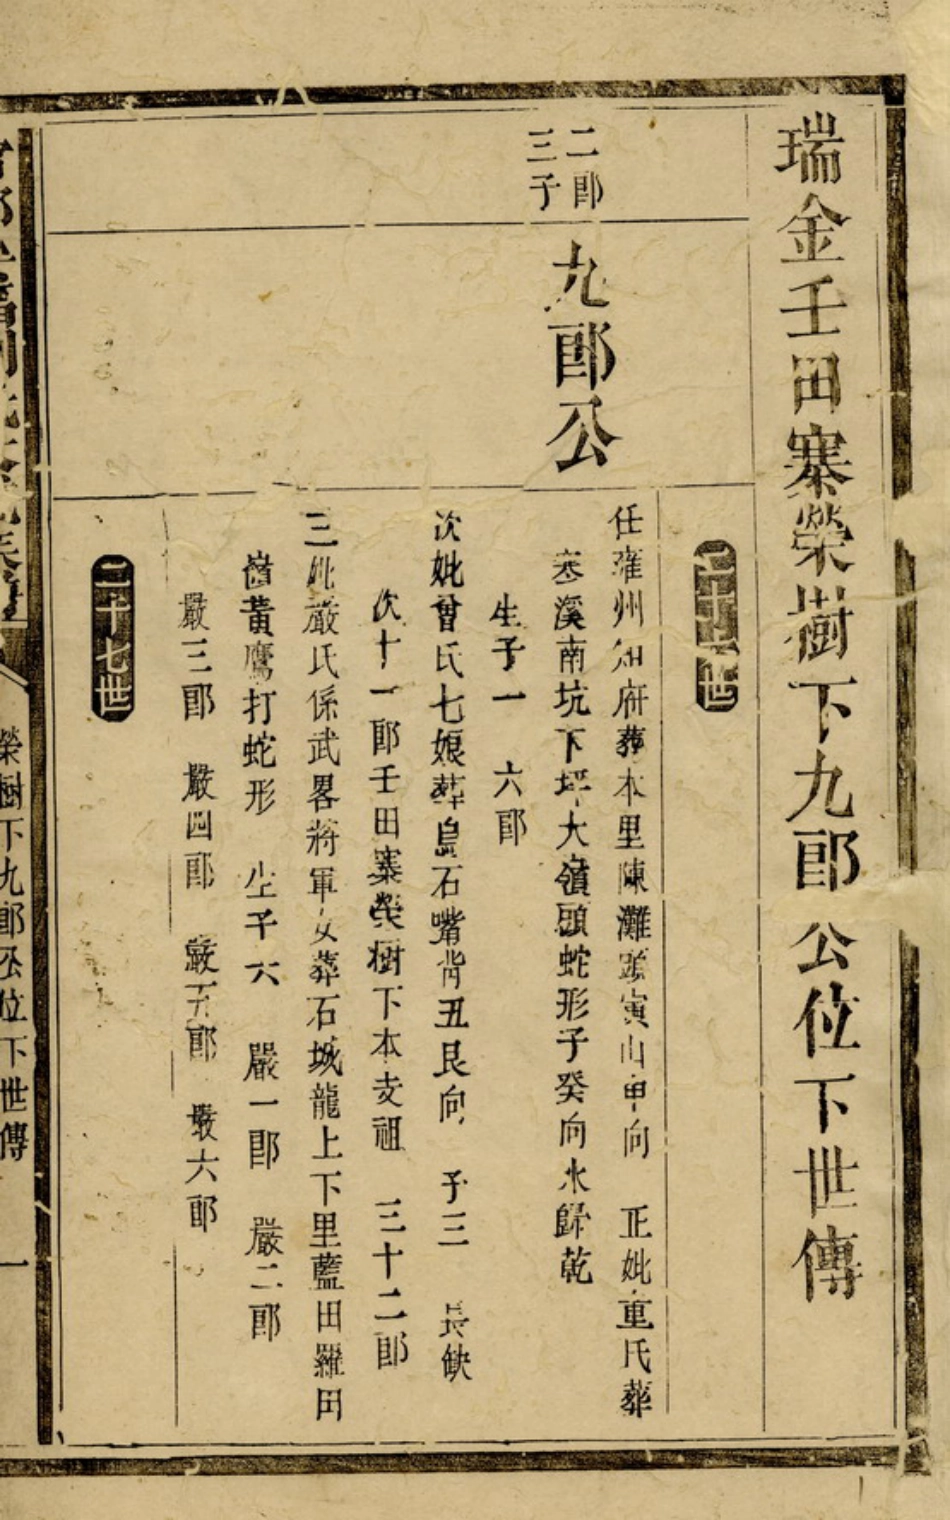 瑞金壬田寨榮樹下九郎公位下世傳
二十六世
二郎
三子
九郎公
任雍州知府葬本里陳灘 寅山申向 正妣董氏葬
寒溪南坑下坪大嶺頭蛇形子癸向水歸乾
生子一 六郎
次妣曾氏七娘葬烏石嘴背丑艮向 子三 長缺
次十一郎壬田寨榮樹下本支祖 三十二郎
三妣嚴氏係武畧將軍女葬石城龍上下里藍田羅田
嶺黃鷹打蛇形 生子六 嚴一郎 嚴二郎
嚴三郎 嚴四郎 嚴五郎 嚴六郎
二十七世
榮樹下九郎公位下世傳 一